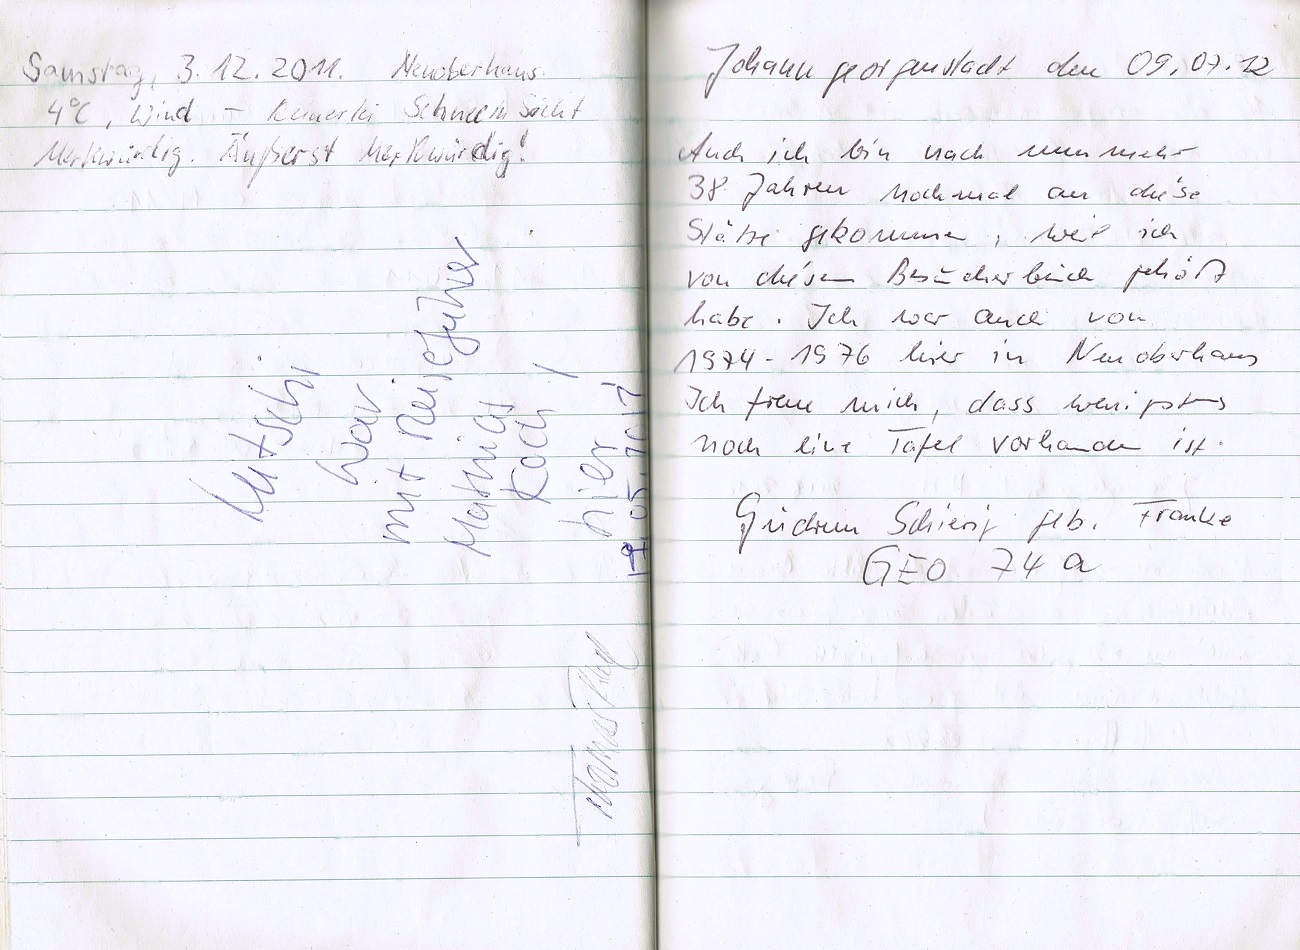 Samstag, 3.12.2011. Neuoberhaus
4°C, Wind – Schnee in Sicht
Merkwürdig. Äußerst Merkwürdig!
war
mit Reiseführer
Mathias
Koch!
hier
Thomas
Johanngeorgenstadt den 09.07.12
Auch ich bin nach nunmehr
38 Jahren nochmal an diese
Stätte gekommen, weil ich
von diesem Besucherbuch gehört
habe. Ich war auch von
1974-1976 hier in Neuoberhaus
Ich freue mich, dass wenigstens
noch eine Tafel vorhanden ist.
Gudrun geb. Franke
GEO 74 a